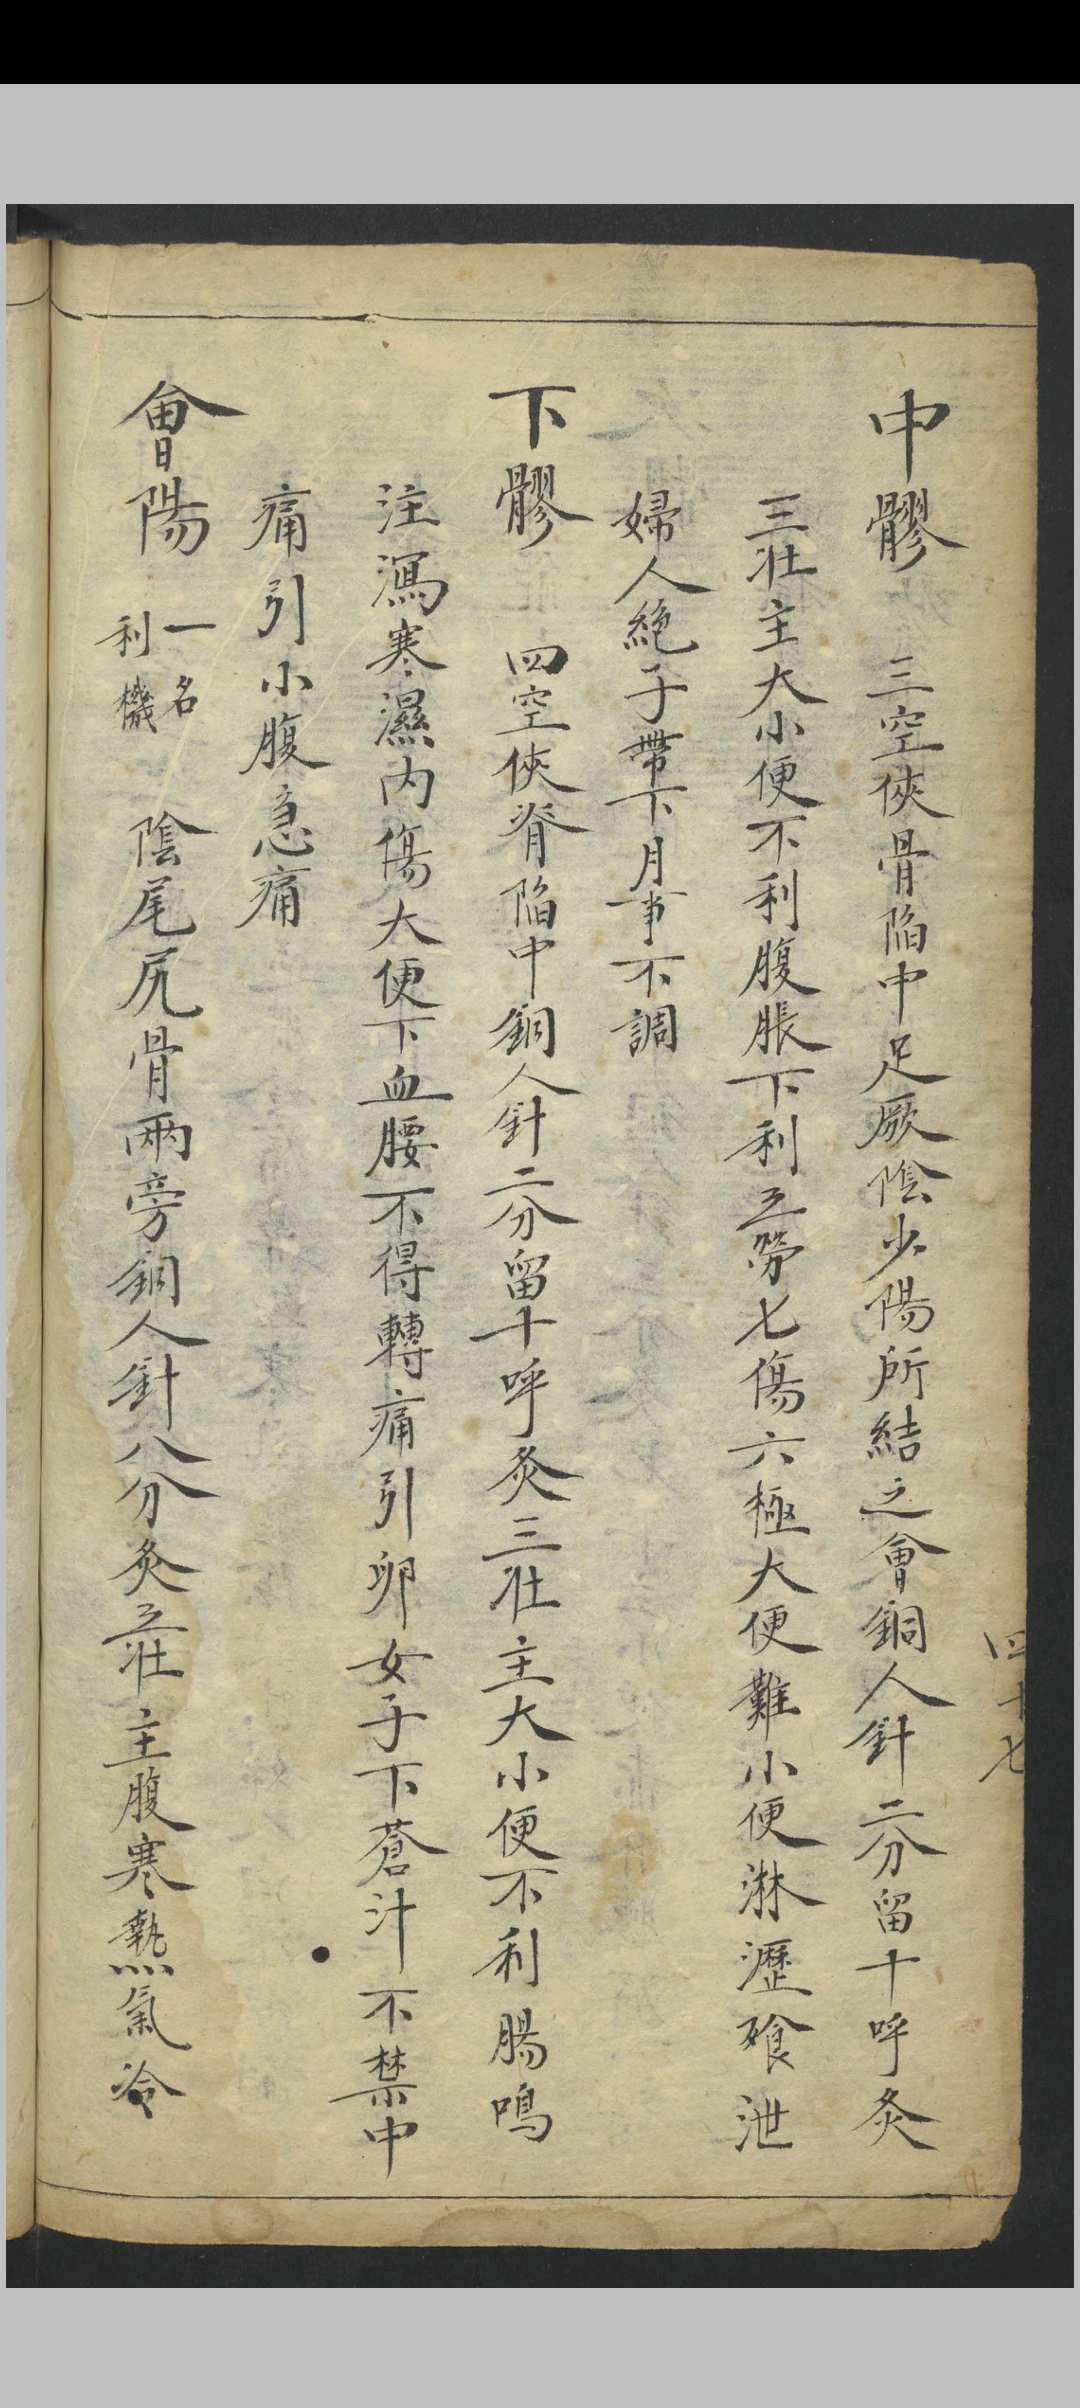 四十七
中髎 三空俠骨陷中足厥陰少陽所結之會銅人針二分留十呼灸
三壯主大小便不利腹脹下利五勞七傷六極大便難小便淋瀝飧泄
婦人絶子帶下月事不調
下髎 四空俠脊陷中銅人針二分留十呼灸三壯主大小便不利腸鳴
注瀉寒濕內傷大便下血腰不得轉痛引卵女子下蒼汁不禁中
痛引小腹急痛
會陽 一名利機 陰尾尻骨兩旁銅人針八分灸五壯主腹寒熱氣冷